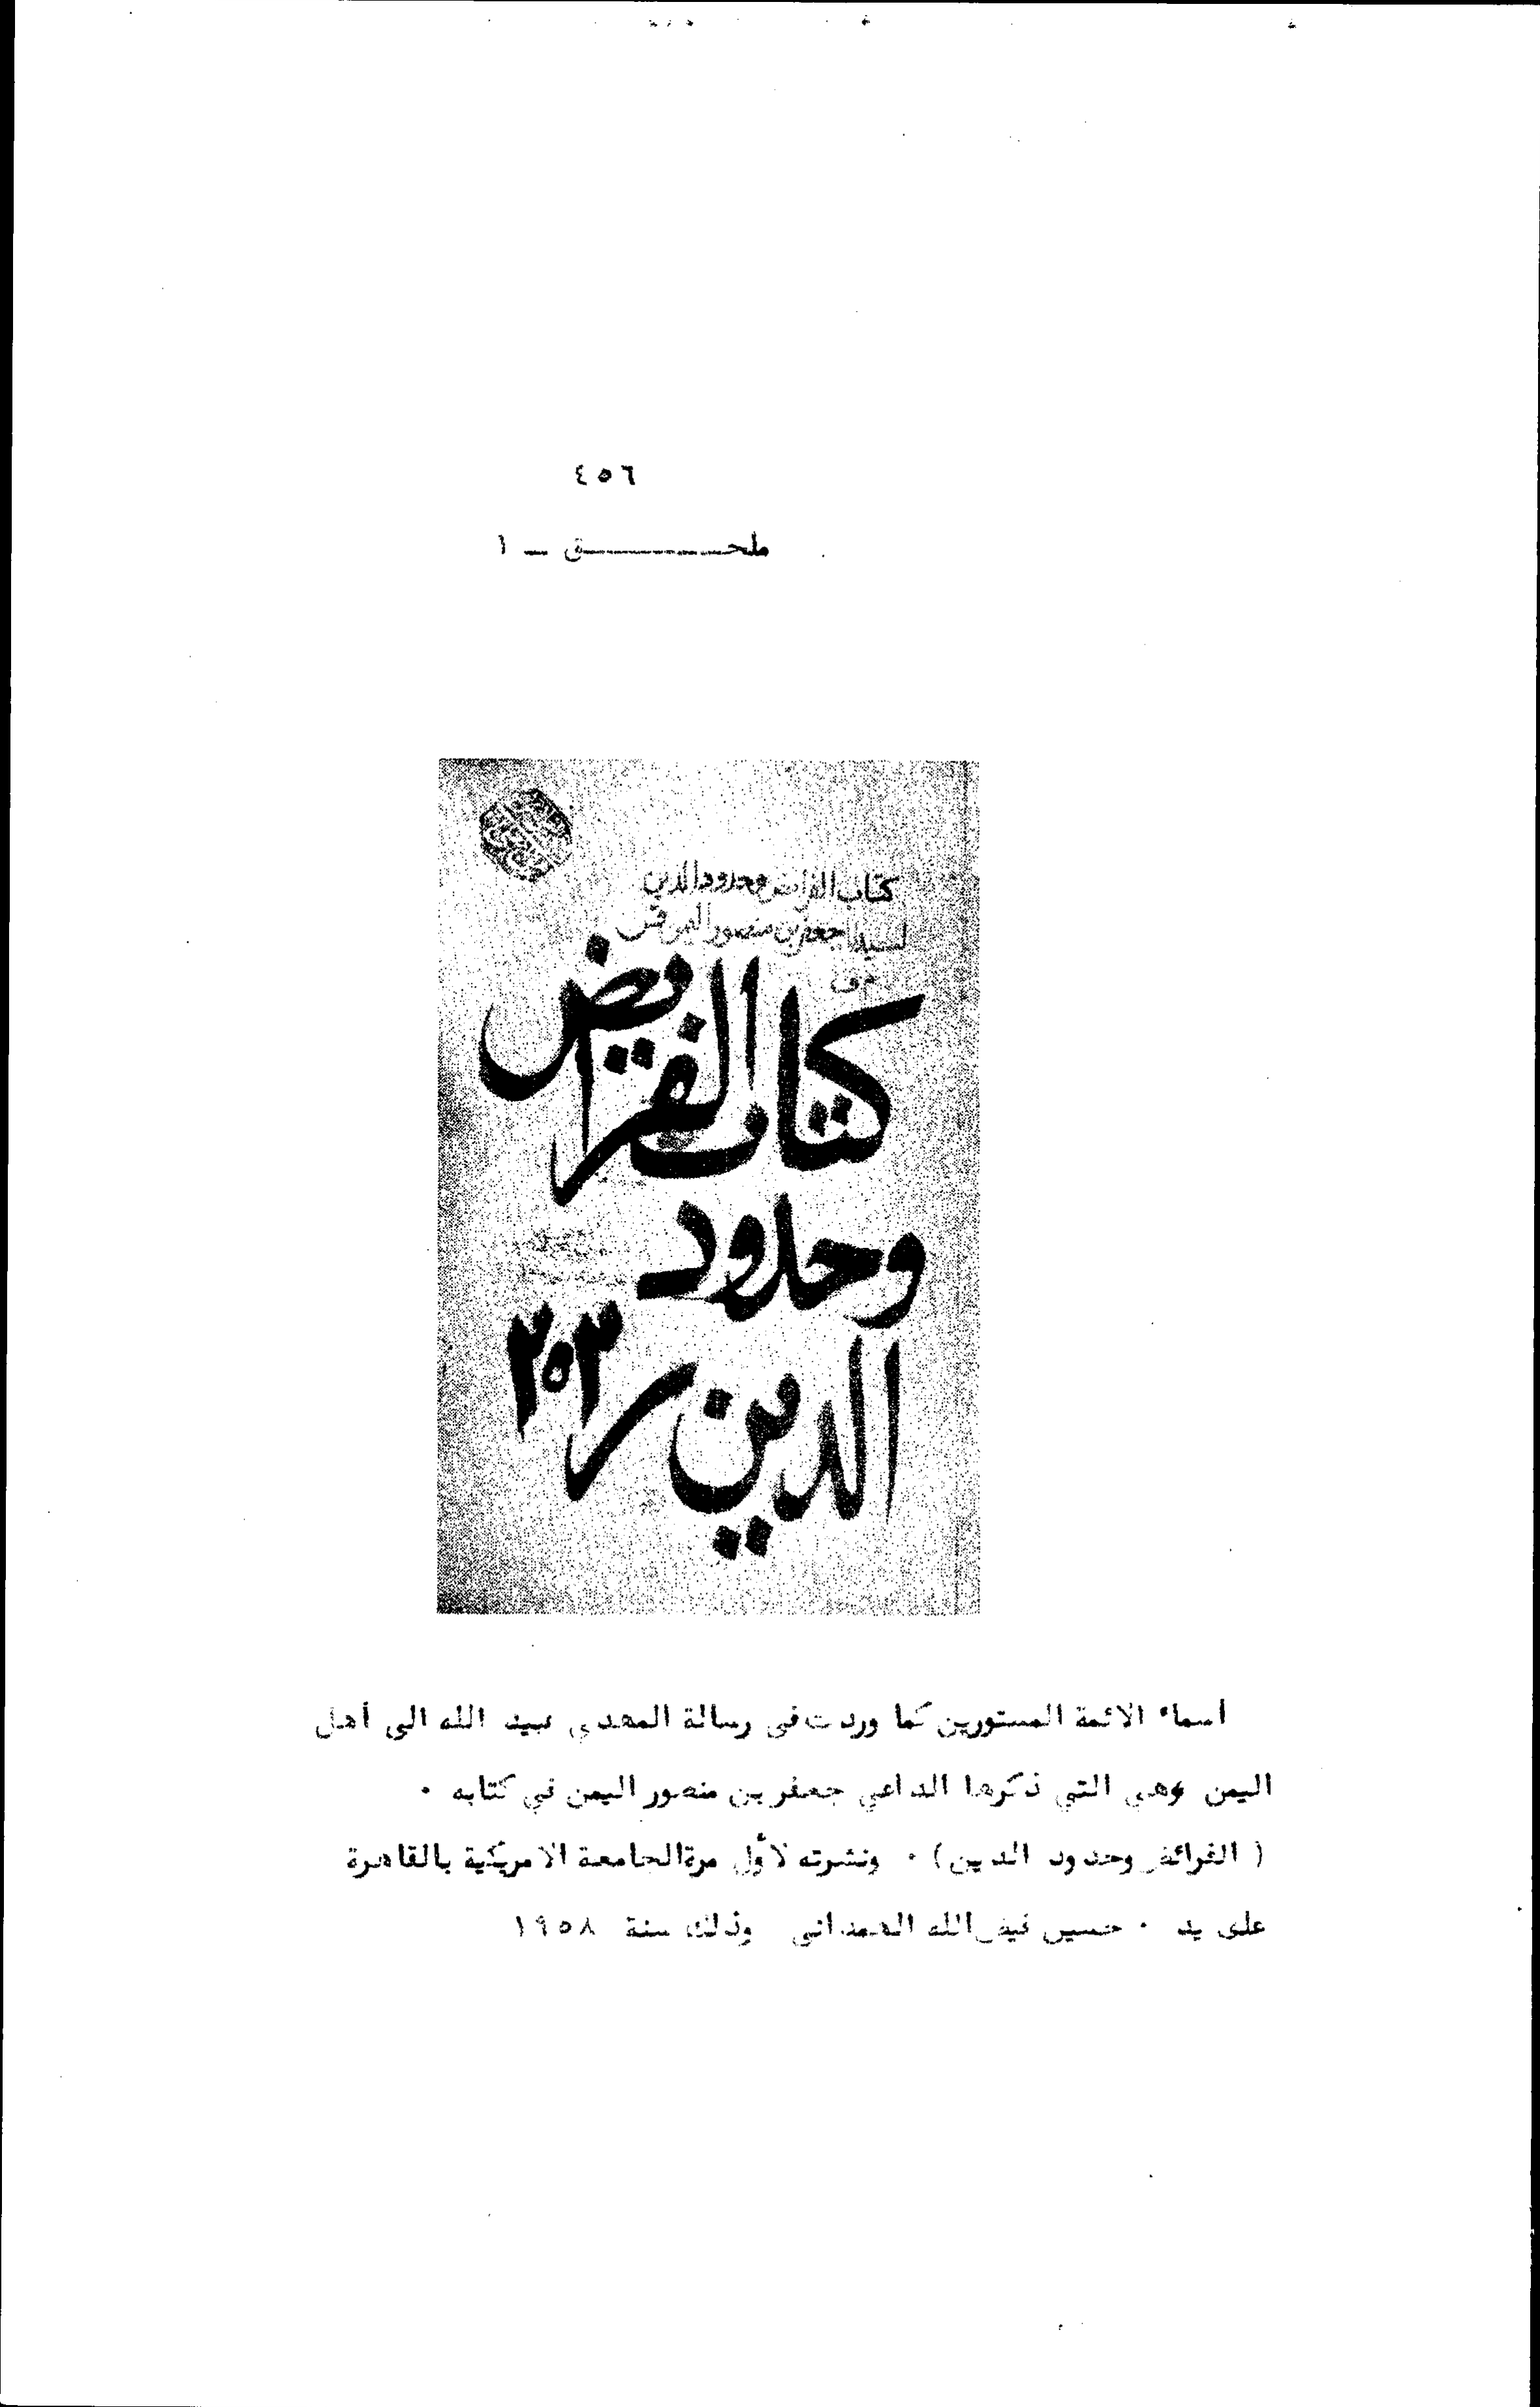 ٤٥٦
ملحق - ١
كتاب الفرائض وحدود الدين
لسيدنا جعفر بن منصور اليمن قس
كتاب الفرايض
وحدود
الدين ٢٥٣
أسماء الائمة المستورين كما وردت في رسالة المهدي عبيد الله الى أهل
اليمن وهي التي ذكرها الداعي جعفر بن منصور اليمن في كتابه ٠
( الفرائض وحدود الدين ) ٠ ونشرته لأول مرة الجامعة الامريكية بالقاهرة
على يد ٠ حسين فيض الله الهمداني وذلك سنة ١٩٥٨